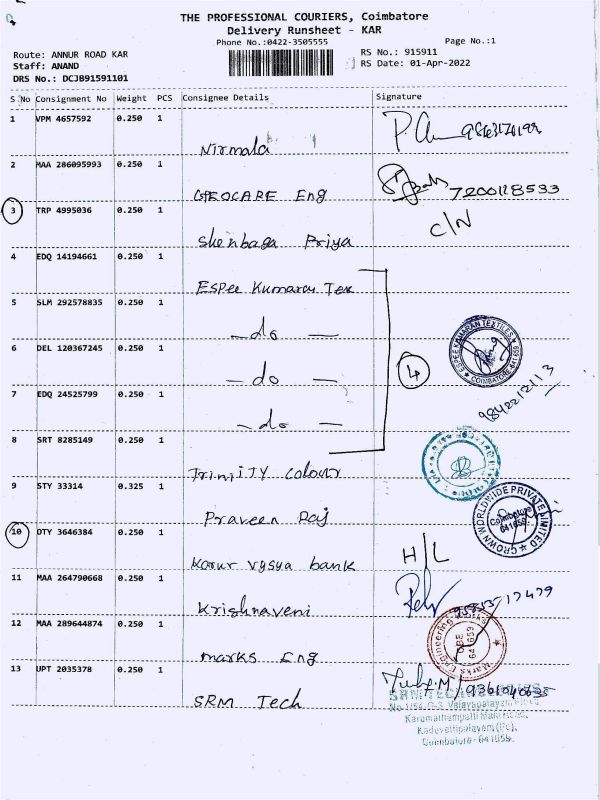 THE PROFESSIONAL COURIERS, Coimbatore
Delivery Runsheet - KAR
Phone No.:0422-3505555
Page No.:1
Route: ANNUR ROAD KAR
RS No.: 915911
Staff: ANAND
RS Date: 01-Apr-2022
DRS No.: DCJB91591101
S No Consignment No Weight PCS Consignee Details Signature
1 VPM 4657592 0.250 1
Nirmala
2 MAA 286095993 0.250 1
GEOCARE Eng
7200118533
3 TRP 4995036 0.250 1
Shenbaga Priya
C/N
4 EDQ 14194661 0.250 1
ESPee Kumaran Tex
5 SLM 292578835 0.250 1
— do —
6 DEL 120367245 0.250 1
— do —
4
ESPEE KUMARAN TEXTILES
COIMBATORE-641 659
7 EDQ 24525799 0.250 1
— do —
9842212113
8 SRT 8285149 0.250 1
Trinity Colour
9 STY 33314 0.325 1
Praveen Raj
CROWN WORLDWIDE PRIVATE LIMITED
Coimbatore
641 659.
10 OTY 3646384 0.250 1
Karur Vysya bank
H/L
11 MAA 264790668 0.250 1
Krishnaveni
12 MAA 289644874 0.250 1
Marks Eng
Marks Engineering Works
CBE
641 659
13 UPT 2035378 0.250 1
SRM Tech
Karumathampatti Main Road,
Kaduvettipalayam (Po),
Coimbatore - 641 659.